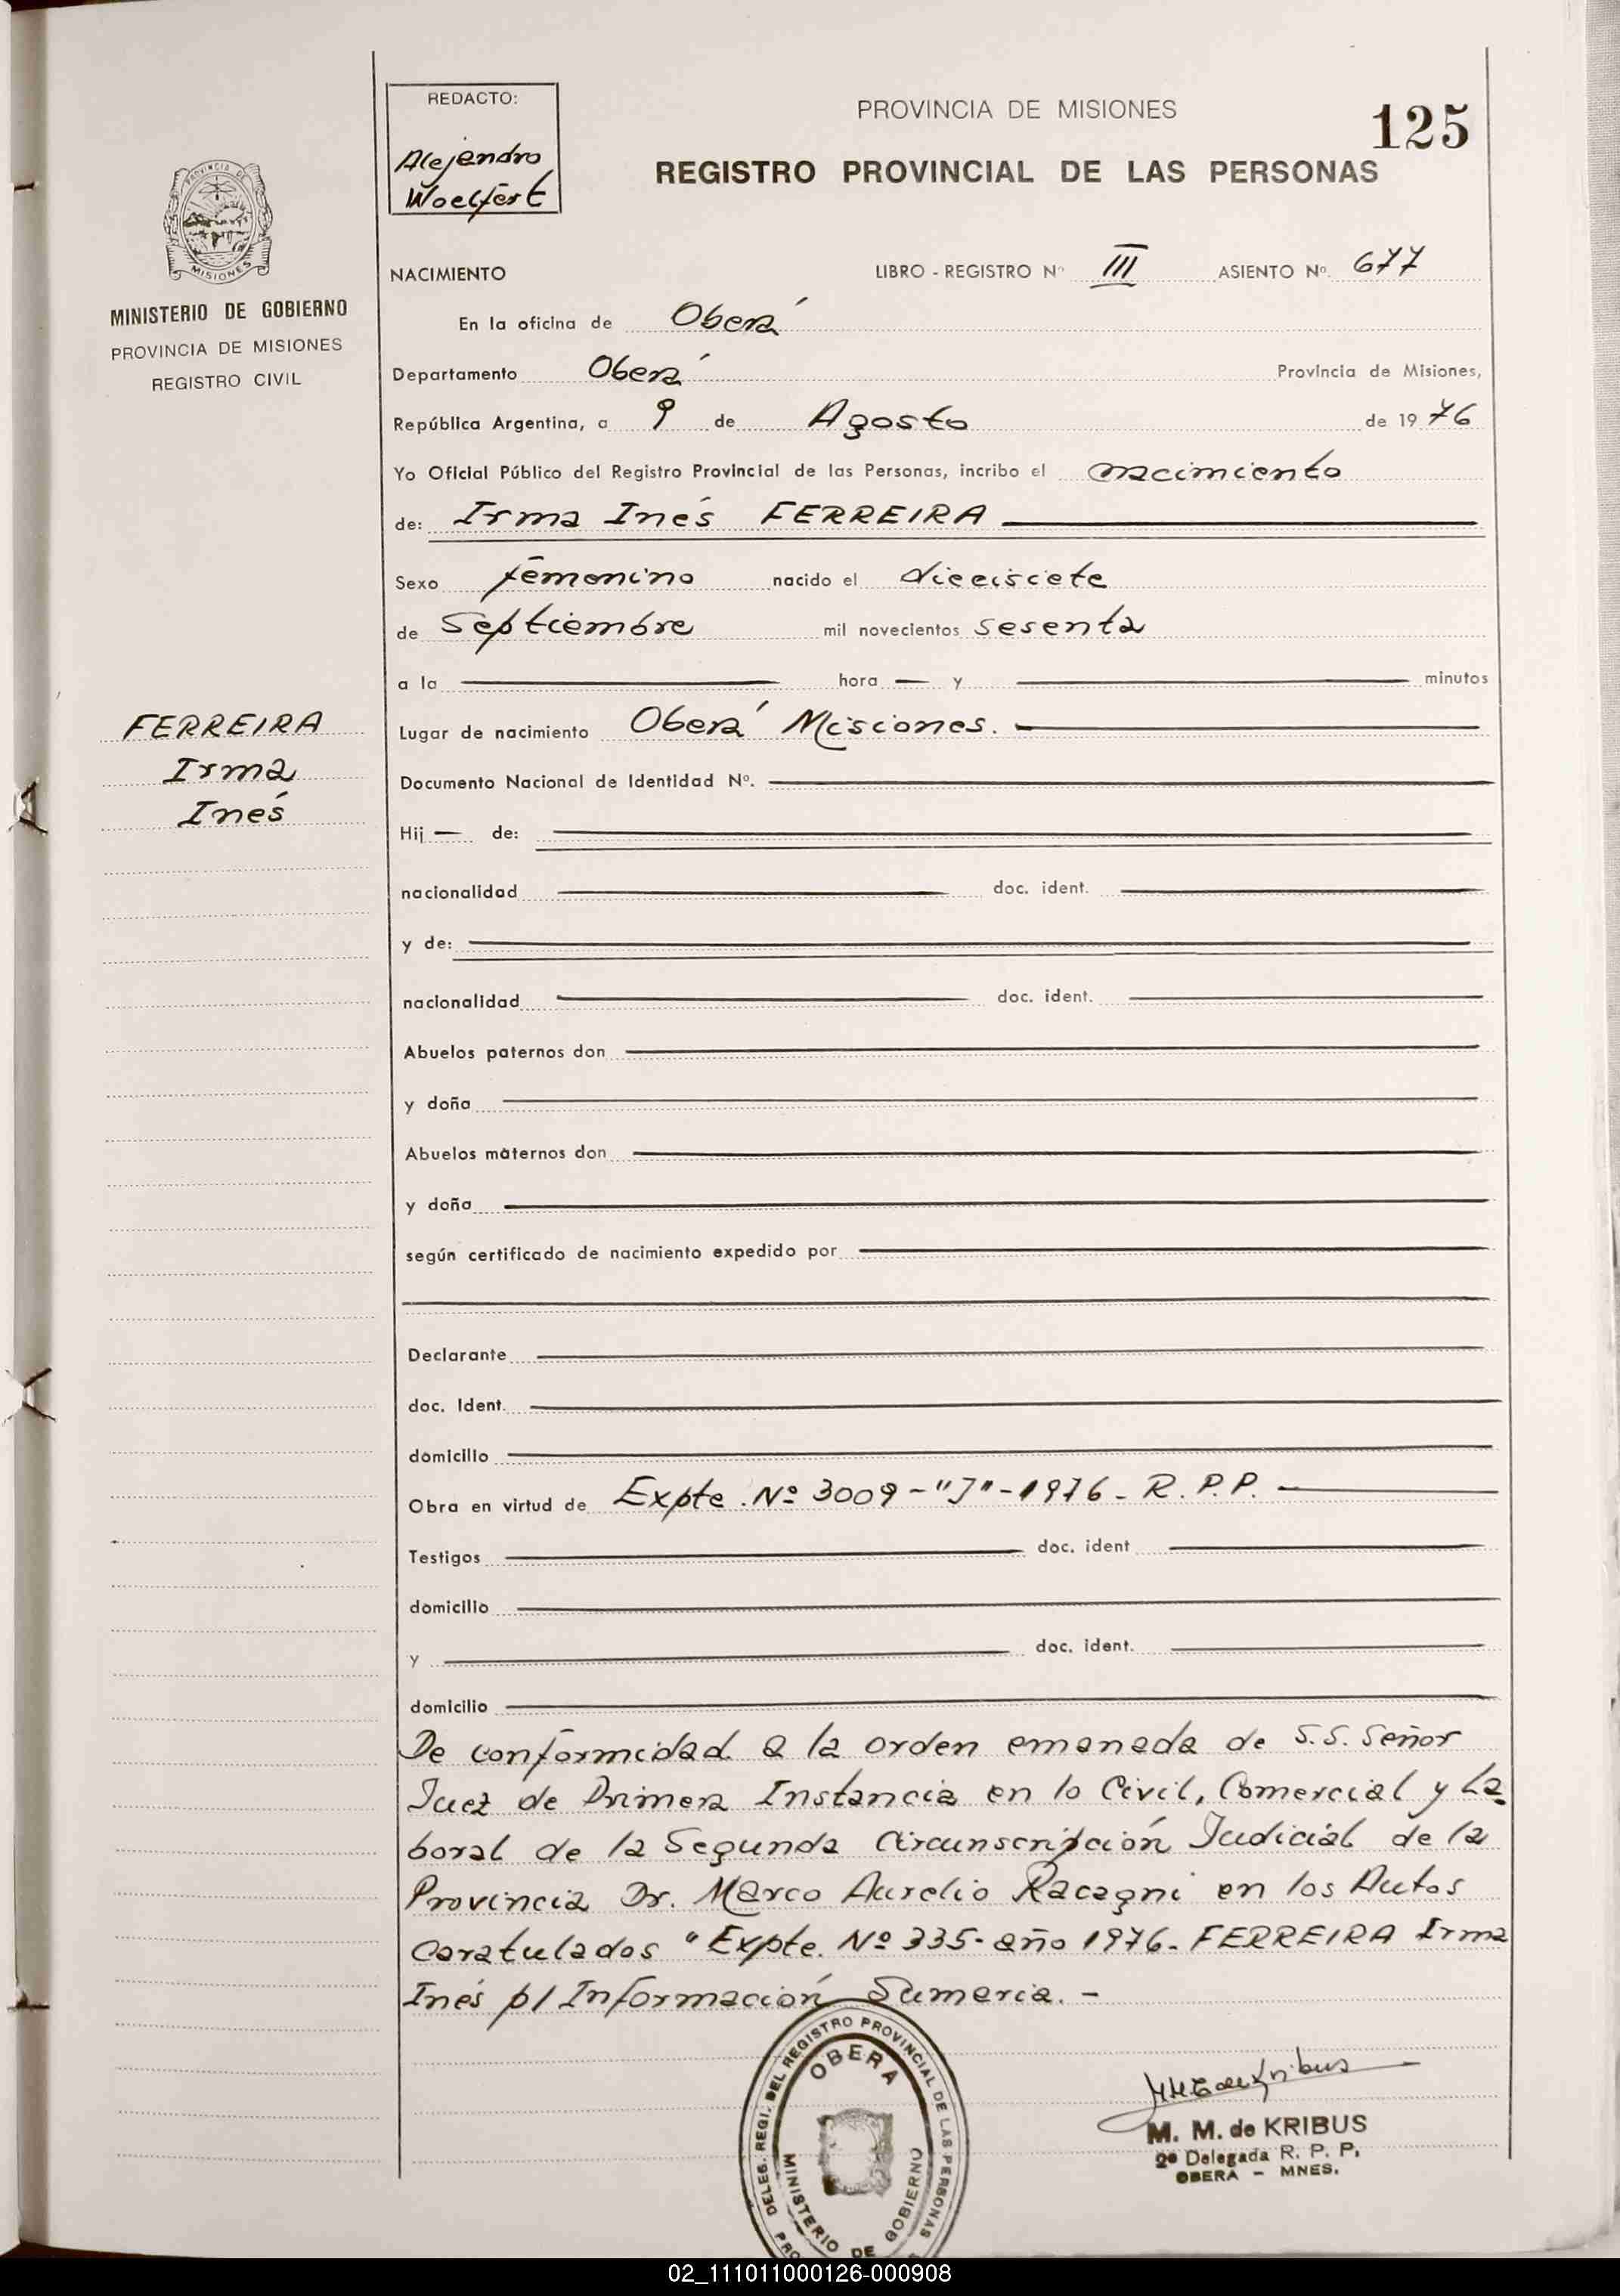 REDACTO:
Alejandro
Woelfert
PROVINCIA DE MISIONES
125
REGISTRO PROVINCIAL DE LAS PERSONAS
PROVINCIA DE
MISIONES
MINISTERIO DE GOBIERNO
PROVINCIA DE MISIONES
REGISTRO CIVIL
NACIMIENTO LIBRO - REGISTRO Nº III ASIENTO Nº. 677
En la oficina de Oberá
Departamento Oberá Provincia de Misiones,
República Argentina, a 9 de Agosto de 1976
Yo Oficial Público del Registro Provincial de las Personas, incribo el nacimiento
de: Irma Inés FERREIRA
Sexo femenino nacido el diecisiete
de Septiembre mil novecientos sesenta
a la hora y minutos
FERREIRA
Irma
Inés
Lugar de nacimiento Oberá Misiones.
Documento Nacional de Identidad Nº.
Hij de:
nacionalidad doc. ident.
y de:
nacionalidad doc. ident.
Abuelos paternos don
y doña
Abuelos maternos don
y doña
según certificado de nacimiento expedido por
Declarante
doc. Ident.
domicilio
Obra en virtud de Expte. Nº 3009-"J"-1976- R.P.P.
Testigos doc. ident
domicilio
y doc. ident.
domicilio
De conformidad a la orden emanada de S.S. Señor
Juez de Primera Instancia en lo Civil, Comercial y La
boral de la Segunda Circunscripción Judicial de la
Provincia Dr. Marco Aurelio Racagni en los Autos
Caratulados "Expte. Nº 335- año 1976- FERREIRA Irma
Inés p/ Información Sumaria. -
DELEG. REGI. DEL REGISTRO PROVINCIAL DE LAS PERSONAS
OBERA
MINISTERIO DE GOBIERNO
M. M. de KRIBUS
2º Delegada R. P. P.
OBERA - MNES.
02_111011000126-000908